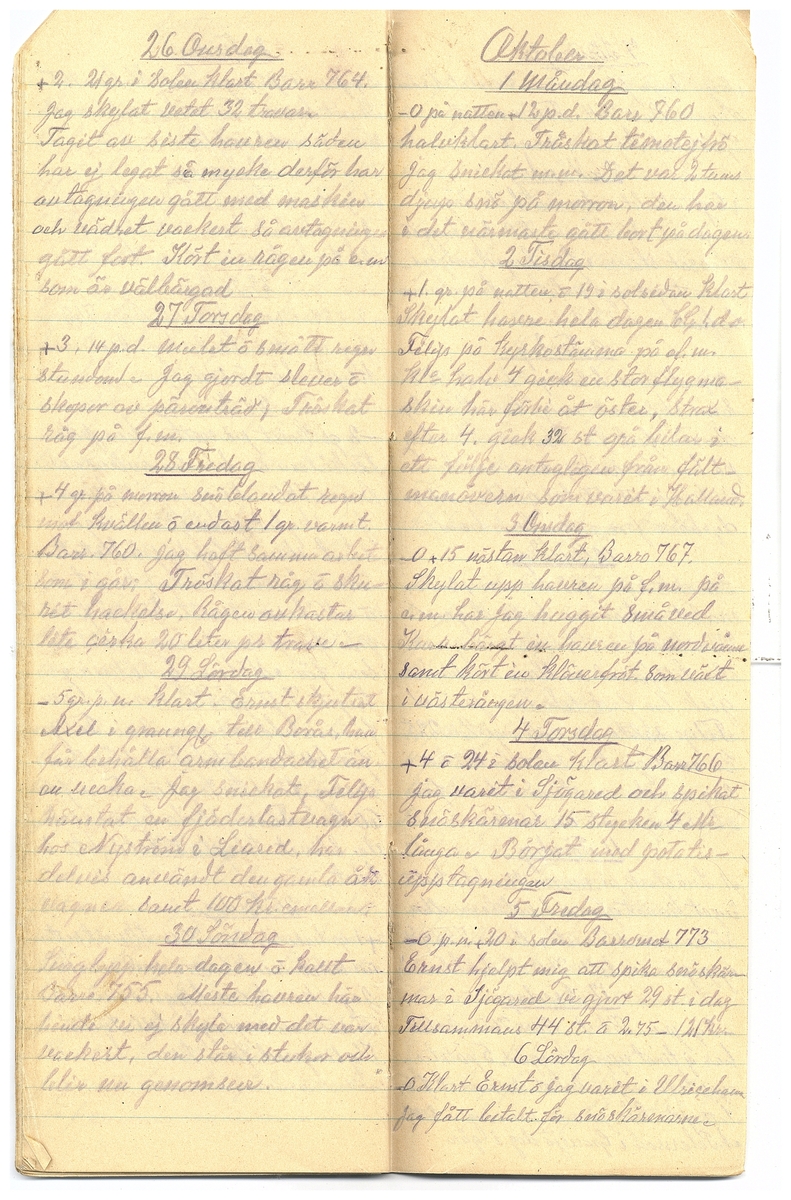 26 Onsdag.
+2. 21 gr. i solen klart Barr 764.
Jag skylat vetet 32 travar
Tagit av siste havren säden
har ej legat så mycke derför har
avtagningen gått med maskin
och vädret vackert så avtagningen
gått fort. Kört in rågen på e.m
som är välbärgad
27 Torsdag
+3, 14 p.d. mulet ö smått regn
stundom. Jag gjordt slever ö
skopor av päronträd, Tröskat
råg på f.m.
28 Fredag
+4 gr. på morron snöblandat regn
mot kvällen ö endast 1 gr. varmt.
Barr. 760. jag haft samma arbet
som i går; Tröskat råg ö sku-
rit hackelse. Rågen avkastar
cirka 20 liter pr trave.
29 Lördag
-5 gr. p. n. klart. Ernst skjutsat
Axel i till Borås, han
får behålla armbandet än
en vecka. Jag snickat, Filip
hämtat en fjäderlastvagn
hos Nyström i Liared, har
delvis användt den gamla åk
vagnen samt 100 kr. emellan
30 Söndag
hela dagen ö kallt
Barro 755. Meste havren har
hunde vi ej skyla med det var
vackert, den står i stukor och
blir nu genomseur.
Oktober
1 Måndag
-0 på natten +12 p.d. Barr 760
halvklart. Tröskat timotejfrö
Jag snickat m.m. Det var 2 tums
djup snö på morron, den har
i det närmaste gått bort på dagen
2 Tisdag
+1. gr. på natten, ö 19 i solsidan klart
Skylat havre hela dagen
Filip på kyrkostämma på ef. m.
Kl= halv 4 gick en stor flygma-
skin här förbi åt öster, strax
efter 4. gick 32 st grå bilar i
ett följe antagligen från fält-
manövern som varit i Halland.
3 Onsdag
-0 +15 nästan klart, Barro 767.
Skylat upp havren på f.m. på
e.m. har jag huggit småved
bärgat in havren på
samt kört in klöverfröt som växt
i västerängen.
4 Torsdag
+4 ö 24 i solen klart Barr 766
jag varit i Sjögared och spikat
snöskärmar 15 stycken 4 Mr
långa. Börjat med potatis-
upptagningen
5 Fredag
-0 p. n. +20 i solen Barromet 773
Ernst hjelpt mig att spika snöskär-
mar i Sjögared vi gjort 29 st. i dag
Tillsammans 44 st. ä 2.75 - 121 kr.
6 Lördag
-0 Klart Ernst ö jag varit i Ulricehamn
Jag fått betalt för snöskärmarne.